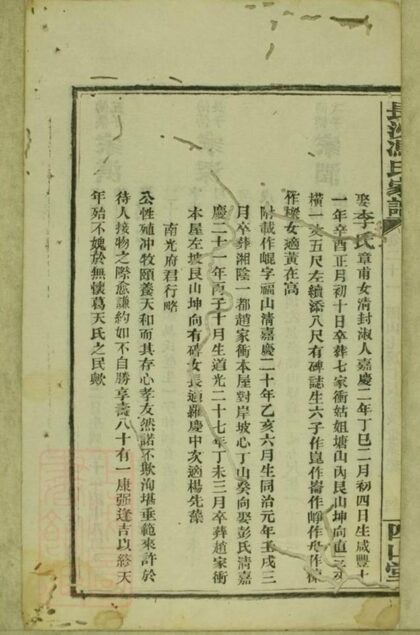 長沙馮氏家譜
娶李氏章甫女清封淑人嘉慶二年丁巳二月初四日生咸豐十
一年辛酉正月初十日卒葬七家衝姑姐塘山內艮山坤向直三丈
橫一丈五尺左續添八尺有碑誌生六子作崑作崙作崢作舟作
作樑女適黃在高
附載作崐字福山清嘉慶二十年乙亥六月生同治元年壬戌三
月卒葬湘陰一都趙家衝本屋對岸坡心丁山癸向娶彭氏清嘉
慶二十一年丙子十月生道光二十七年丁未三月卒葬趙家衝
本屋左坡艮山坤向有碑女長適羅慶中次適楊先藻
南光府君行略
公性冲牧頤養天和而其存心孝友然諾不欺洵堪垂範來許於
待人接物之際愈謙約如不自勝享壽八十有一康强逢吉以終天
年殆不媿於無懷葛天氏之民歟
四